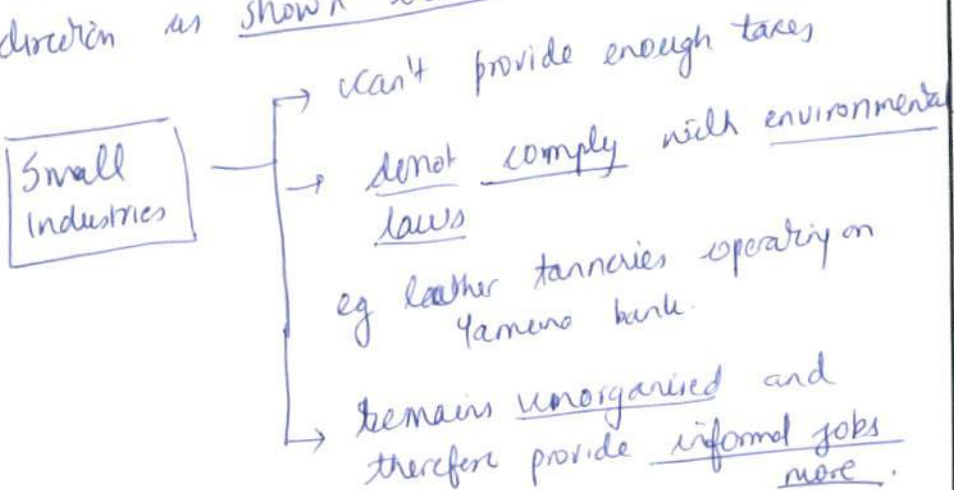 direction as shown
can't provide enough taxes
Small
Industries
donot comply with environmental
laws
eg leather tanneries operating on
Yamuna bank.
Remains unorganised and
therefore provide informal jobs
more.